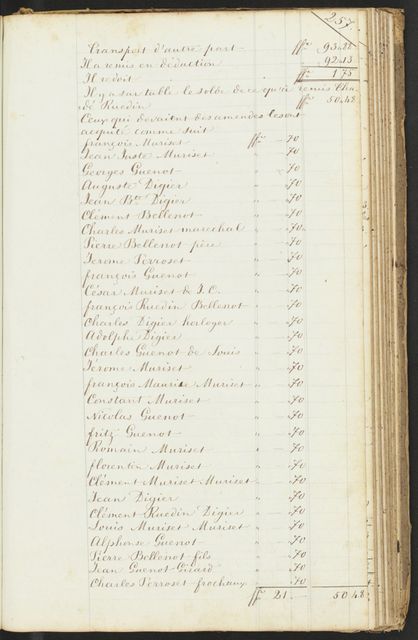 257.
Transport d'autre part ff. 93.88
Il a remis en déduction 92.13
Il redoit ff. 1.75
Il y a sur table le solde de ce qu'a remis Cha.
dé Ruedin ff. 50.48
Ceux qui devaient des amendes les ont
acquité comme suit
françois Muriset ff. -.70
Jean Juste Muriset " -.70
Georges Guenot " -.70
Auguste Digier " -.70
Jean Bte Digier " -.70
Clément Bellenot " -.70
Charles Muriset maréchal " -.70
Pierre Bellenot père " -.70
Jerome Perroset " -.70
françois Guenot " -.70
César Muriset & J. C. " -.70
françois Ruedin Bellenot " -.70
Charles Digier horloger " -.70
Adolphe Digier " -.70
Charles Guenot de Louis " -.70
Jérome Muriset " -.70
françois Maurice Muriset " -.70
Constant Muriset " -.70
Nicolas Guenot " -.70
fritz Guenot " -.70
Romain Muriset " -.70
florentin Muriset " -.70
Clément Muriset Muriset " -.70
Jean Digier " -.70
Clément Ruedin Digier " -.70
Louis Muriset Muriset " -.70
Alphonse Guenot " -.70
Pierre Bellenot fils " -.70
Jean Guenot Girard " -.70
Charles Perroset frochaux " -.70
ff. 21.- 50.48